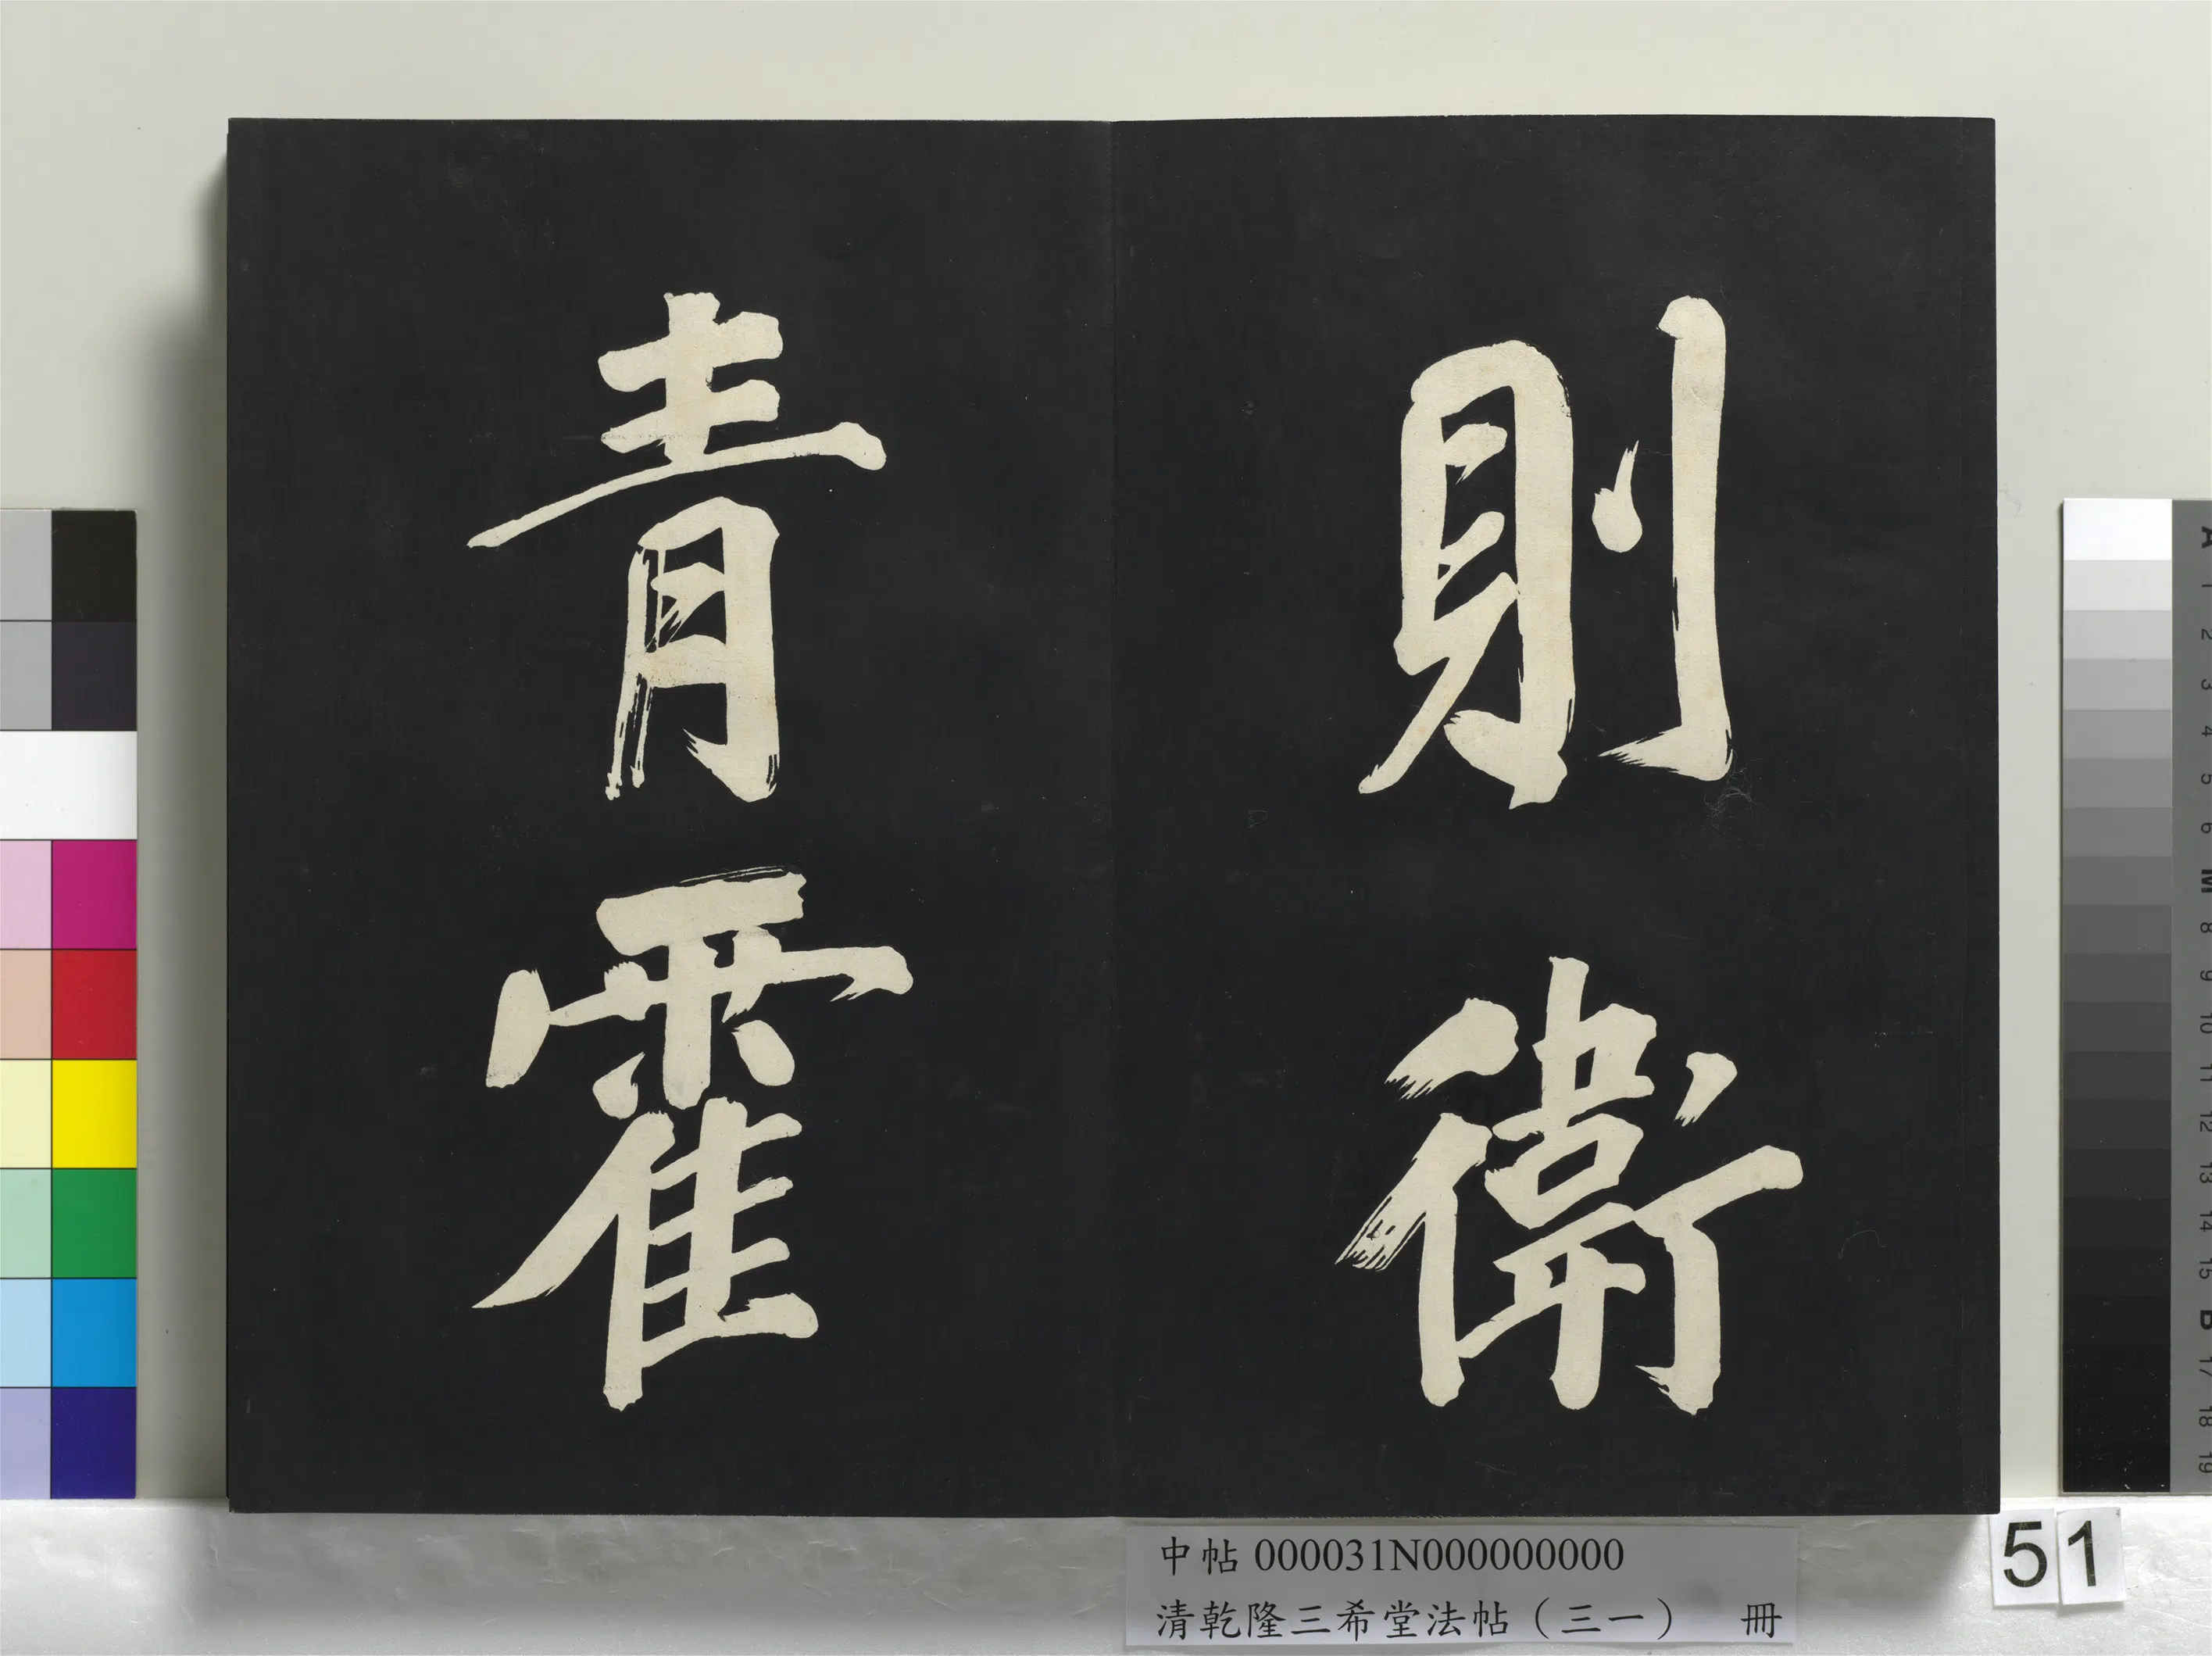 則衛
青霍
中帖 000031N000000000
清乾隆三希堂法帖（三一） 冊
51
A 1 2 3 4 5 6 M 8 9 10 11 12 13 14 15 B 17 18 19